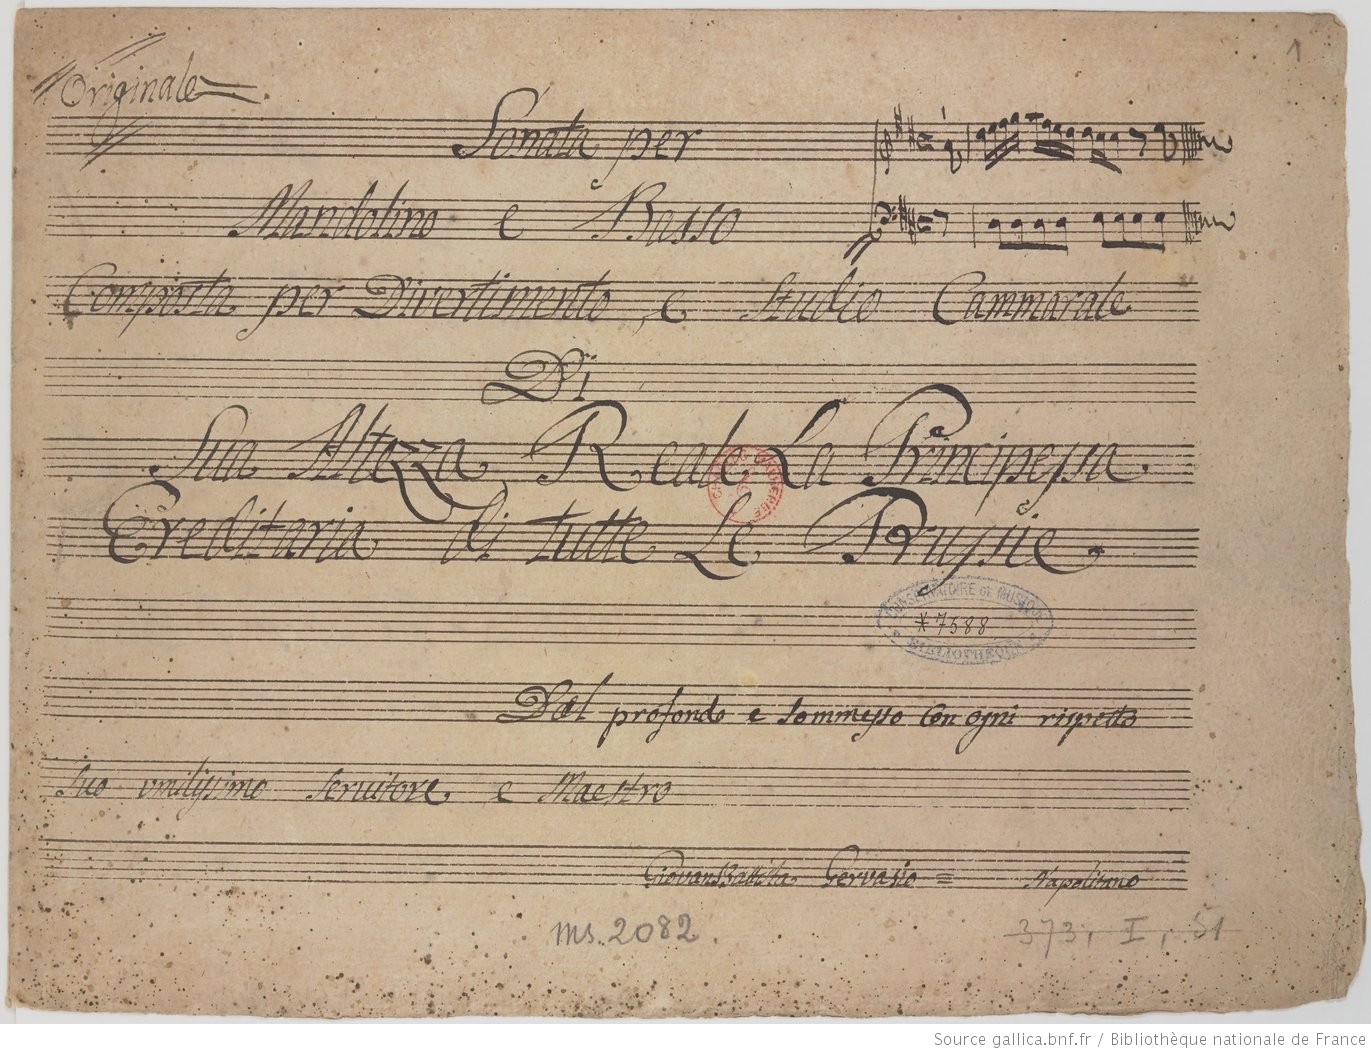 1
Originale
Sonata per
Mandolino e Basso
Composta per Divertimento, e Studio Cammarale
Di
Sua Altezza Reale La Principessa
Ereditaria di tutte Le Prussie.
CONSERVATOIRE DE MUSIQUE
*7588
BIBLIOTHÈQUE
Dal profondo e sommesso Con ogni rispetto
Suo umilissimo servitore e Maestro
GiovanBattista Gervasio = Napolitano
ms. 2082.
373, I, 51
Source gallica.bnf.fr / Bibliothèque nationale de France